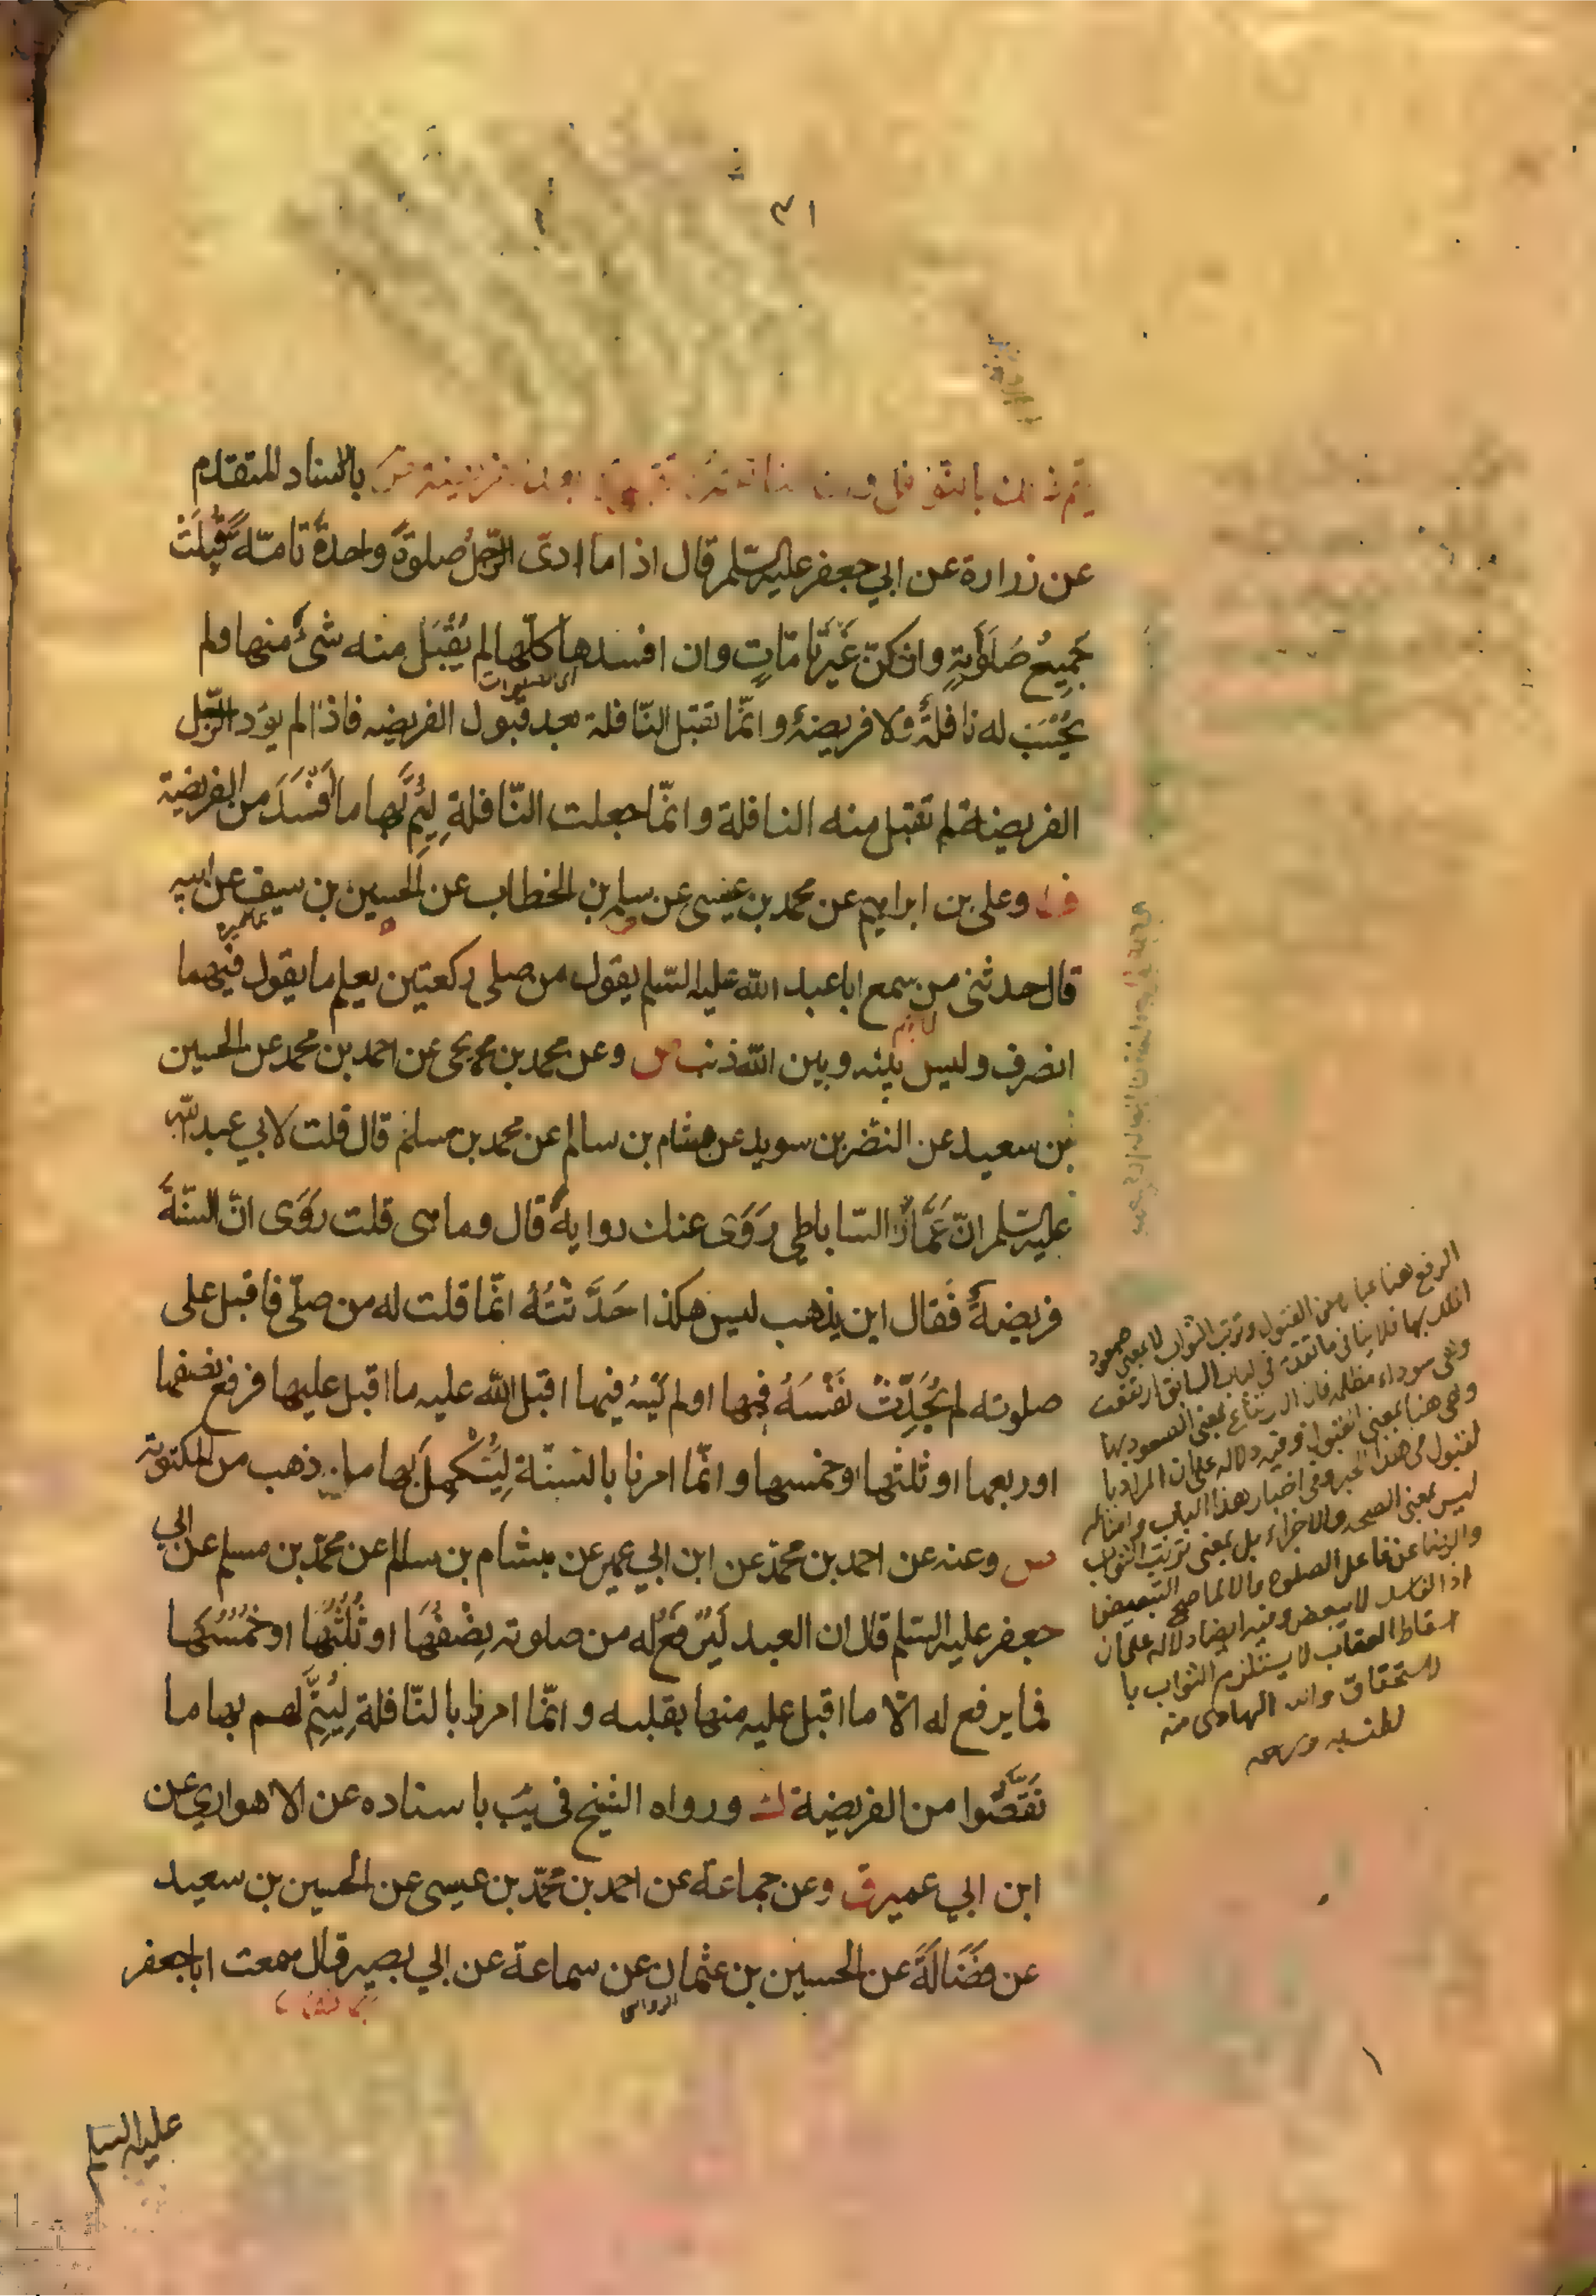 ٣١
بالاسناد المتقدم
عن زرارة عن ابي جعفر عليه السّلم قال اذا ما ادّى الرّجل صلوةً واحدةً تامّةً قُبِلَتْ
جَمِيعُ صَلَوٰتِهِ وان كنّ غَيْرَ تامّاتٍ وان افسدها كلّها لم يُقْبَل منه شئ منها ولم
يُحْسَبْ له نافلةٌ ولا فريضةٌ وانّما تقبل النّافلة بعد قبول الفريضه فاذا لم يؤد الرّجل
الفريضة لم تقبل منه النافلة وانّما جعلت النّافلة لِيُتِمَّ بها ما اَفْسَدَ من الفريضة
وعلى بن ابراهيم عن محمد بن عيسى عن سلم بن الخطاب عن الحسين بن سيف عن ابيه
عميرة
قال حدثنى من سمع ابا عبد الله عليه السّلم يقول من صلى ركعتين يعلم ما يقول فيهما
انصرف وليس بينه وبين الله ذنب س وعن محمد بن يحيى عن احمد بن محمد عن الحسين
بن سعيد عن النضر بن سويد عن هشام بن سالم عن محمد بن مسلم قال قلت لابي عبد الله
عليه السّلم انّ عَمَّارَ السّاباطي رَوَى عنك روايةً قال وما هى قلت رَوَى انّ السنّةَ
فريضةٌ فقال اين يذهب ليس هكذا حَدَّثتُهُ انّما قلت له من صلّى فاقبل على
صلوته لم يُحَدِّثْ نَفْسَهُ فيها او لم يَسْهُ فيها اقبل الله عليه ما اقبل عليها فرفع نصفها
او ربعها او ثلثها او خمسها وانّما امرنا بالسنّة لِيُسْتَكْمِلَ بها ما ذهب من المكتوبة
س وعنه عن احمد بن محمّد عن ابن ابي عمير عن هشام بن سالم عن محمّد بن مسلم عن ابي
جعفر عليه السّلم قال ان العبد لَيُرْفَعُ له من صلوته نِصْفُهَا او ثُلُثُهَا او خُمُسُهَا
فما يرفع له الّا ما اقبل عليه منها بقلبه وانّما امرنا بالنّافلة لِيُتِمَّ لهم بها ما
نَقَصُوا من الفريضة ورواه الشيخ فى يب باسناده عن الاهوازي عن
ابن ابي عمير ق وعن جماعة عن احمد بن محمّد بن عيسى عن الحسين بن سعيد
عن فَضَالَةَ عن الحسين بن عثمان عن سماعة عن ابي بصير قال سمعت ابا جعفر
الرواسى
عليه السلم
الرفع هنا عبارة عن القبول وترتب الثواب لا بمعنى صعود
الملك بها فلا ينافى ما تقدم فى الباب السابق ارتفعت
وهى سوداء مظلمه فان الارتفاع بمعنى الصعود بها
وهى هنا بمعنى القبول وفيه دلاله على ان المراد با
لقبول فى هذا الخبر وفى اخبار هذا الباب وامثاله
ليس بمعنى الصحه والاجزاء بل بمعنى ترتب الثواب
والرضا عن فاعل الصلوه والا لما صح التبعيض
اذ الفاسد لا يتبعض وفيه ايضا دلاله على ان
اسقاط العقاب لا يستلزم الثواب با
لاستحقاق والله الهادى منه